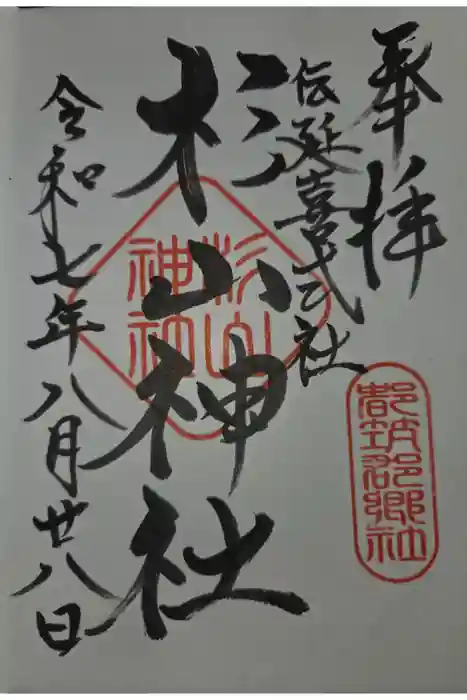 奉拝
伝延喜式社
杉山神社
令和七年八月廿八日
杉山
神社
都筑郡郷社